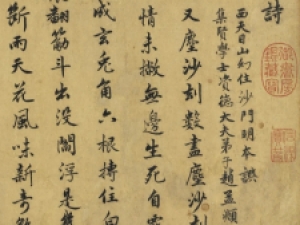 詩
西天目山幻住沙門明本譔
集賢學士資德大夫弟子趙孟頫
又塵沙刼數盡塵沙
情未撇無邊生死自
成玄兎角六根摶住
翻筋斗出没閻浮是
斷雨天花風味新奇